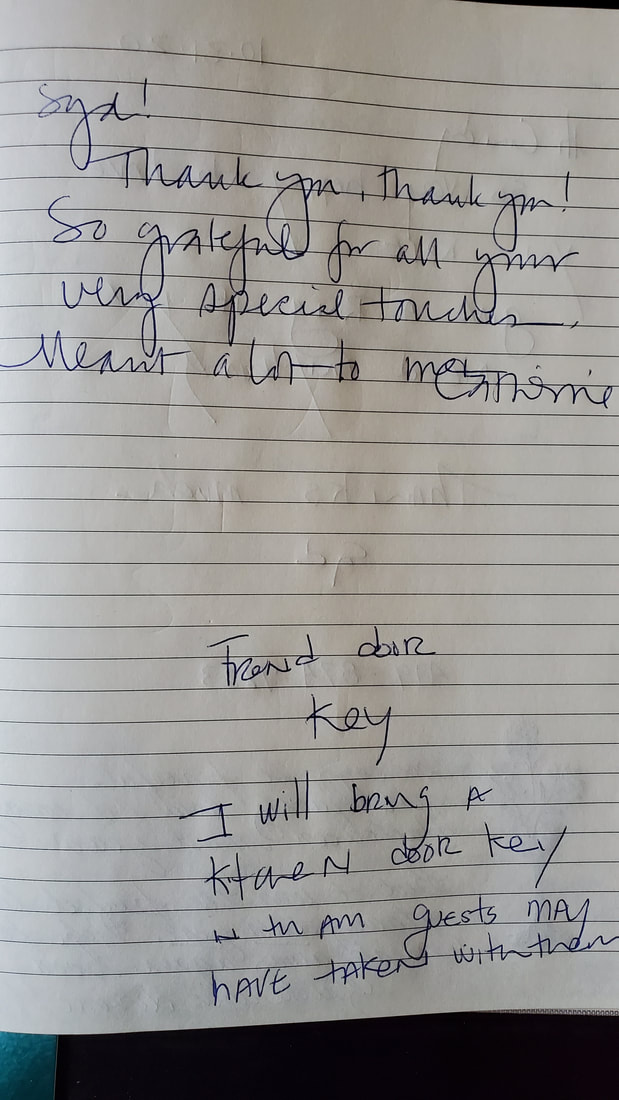 Syd!
Thank you, thank you!
So grateful for all your
very special touches.
Meant a lot to me
Frond door
key
I will bring A
kitchen door key
in the AM guests MAY
HAVE TAKEN with them